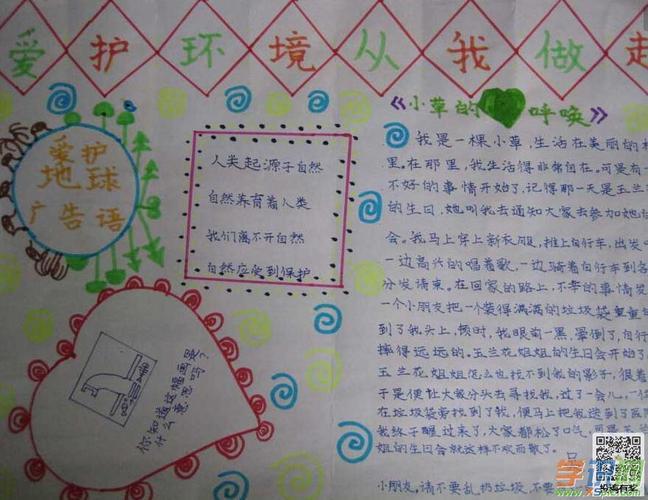 爱护环境从我做起
爱护
地球
广告语
人类起源于自然
自然养育着人类
我们离不开自然
自然应受到保护
你知道这幅画是
什么意思吗？
《小草的 呼唤》
我是一棵小草，生活在美丽的
里。在那里，我生活得非常自在。可是有一
不好的事情开始了，记得那一天是玉兰
的生日，她叫我去通知大家去参加她
会。我马上穿上新衣服，推上自行车，出发
一边高兴的唱着歌，一边骑着自行车到各
分发请柬。在回家的路上，不幸的事情发
一个小朋友把一个装得满满的垃圾袋重重
到了我头上，顿时，我眼前一黑，晕倒了，自行
摔得远远的。玉兰花姐姐的生日会开始了
玉兰花姐姐怎么也找不到我的影子，很着
于是便让大家分头去寻找我，过了一会儿，一
在垃圾袋旁找到了我，便马上把我送到了医
我终于醒过来了，大家都松了口气，
姐的生日会就这样不欢而散了。
小朋友，请不要乱扔垃圾，不要